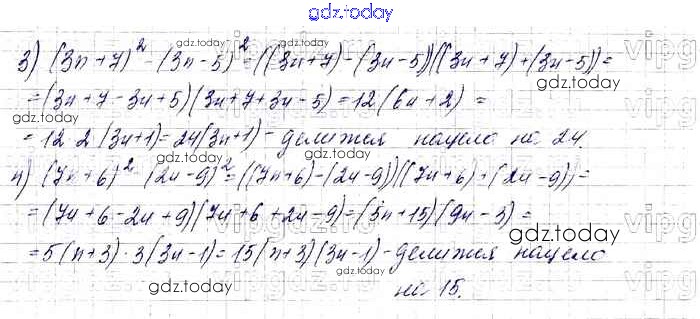 gdz.today
3) (3n+7)² - (3n-5)² = ((3n+7)-(3n-5))((3n+7)+(3n-5)) =
= (3n+7-3n+5)(3n+7+3n-5) = 12(6n+2) =
= 12·2(3n+1) = 24(3n+1) - делится нацело на 24.
4) (7n+6)² - (2n-9)² = ((7n+6)-(2n-9))((7n+6)+(2n-9)) =
= (7n+6-2n+9)(7n+6+2n-9) = (5n+15)(9n-3) =
= 5(n+3)·3(3n-1) = 15(n+3)(3n-1) - делится нацело
на 15.
gdz.today
gdz.today
gdz.today
gdz.today
gdz.today
gdz.today
gdz.today
gdz.today